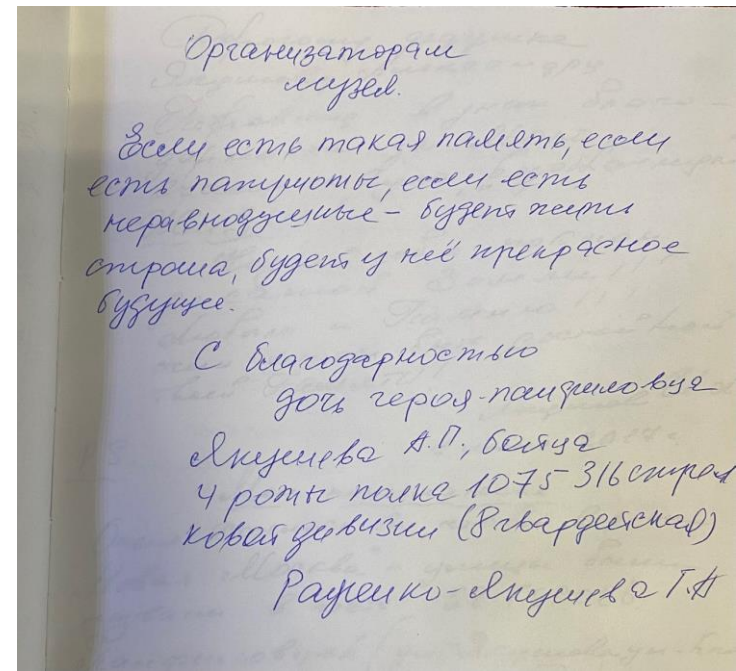 Организаторам
музея.
Если есть такая память, если
есть патриоты, если есть
неравнодушные - будет жить
страна, будет у неё прекрасное
будущее.
С благодарностью
дочь героя-панфиловца
А.П., бойца
4 роты полка 1075 316 стрел
ковой дивизии (8 гвардейская)